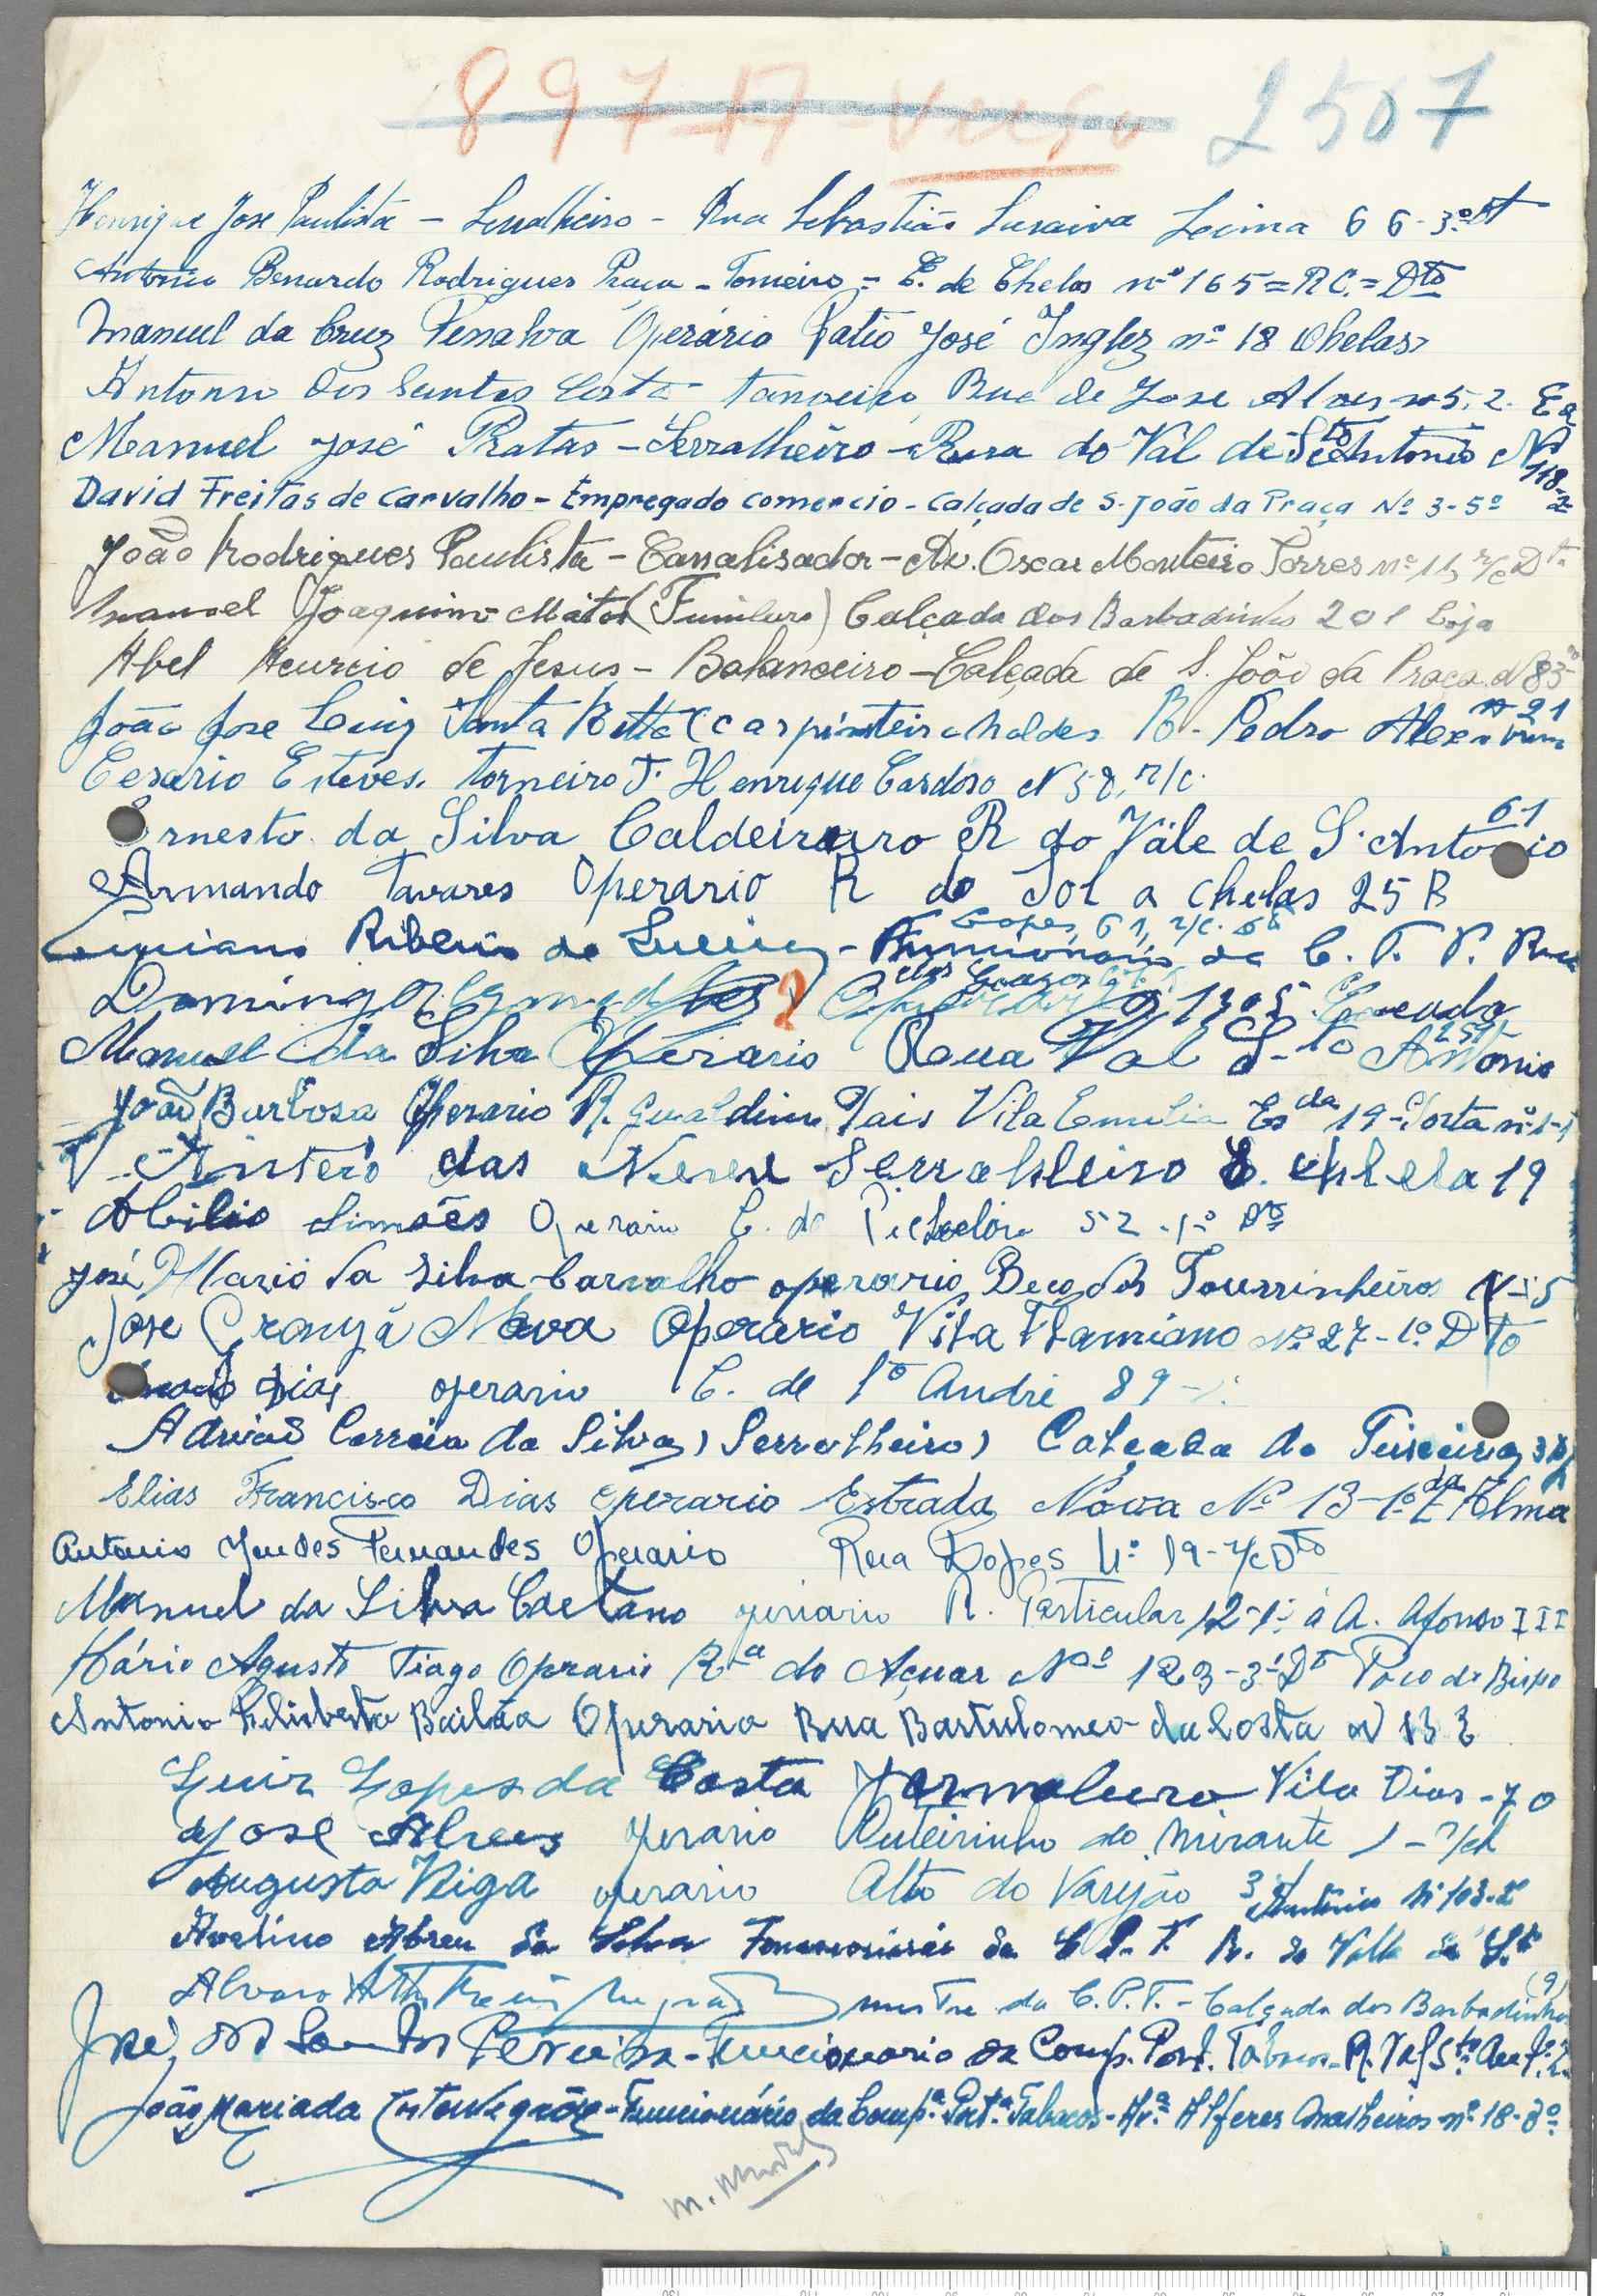 897 17 - verso 2507
Henrique Jose Paulista - Serralheiro - Rua Sebastião Saraiva Leima 66-3º Dt
Antonio Benardo Rodrigues Praça - Torneiro = E. de Chelas nº 165 = RC. = Dto
Manuel da Cruz Penalva Operário Patio José Inglez nº 18 Chelas
Antonio dos Santos Costa tanoeiro Rua de Jose Alves nº 5, 2. Eq
Manuel José Pratas - Serralheiro - Rua do Val de Sto Antonio Nº 118-2º
David Freitas de Carvalho - Empregado comercio - Calçada de S. João da Praça Nº 3-5º
João Rodrigues Paulista - Canalisador - Av. Oscar Monteiro Torres nº 11, r/c Dto
Manuel Joaquim Matos (Funileiro) Calçada dos Barbadinhos 201 loja
Abel Acurcio de Jesus - Balanceiro - Calçada de S. João da Praça Nº 83
João Jose Luiz Santa Ritta (carpinteiro moldes R. Pedro Alexandrino nº 21
Cesario Esteves. torneiro T. Henrique Cardoso N 58, r/c.
Ernesto da Silva Caldeireiro R do Vale de S. Antonio 61
Armando Tavares Operario R do Sol a Chelas 25 B
Lopes, 61, r/c. Dto
Luciano Ribeiro de - Funcionario da C. P. T. Rua
Domingos 130 Cruzes da
Manuel da Silva Operario Rua Val Sto Antonio 251
João Barbosa Operario R. Gualdim Pais Vila Emilia Esda 19 - Porta nº 1-1
Antero das Neves Serralheiro E. chelas 19
Abilio Simões Operario C. do Picheleiro 52-1º Dto
José Mario da Silva Carvalho operario Beco dos Toucinheiros Nº 5
Jose Granja Nova Operario Vila Flamiano Nº 27-1º Dto
Dias operario C. de Sto André 89
Adrião Correia da Silva, (Serralheiro) Calçada do Teixeira,
Elias Francisco Dias operario Estrada Nova Nº 13-1º E da Palma
Antonio Mendes Fernandes Operario Rua Lopes Nº 19-r/c Dto
Manuel da Silva Caetano operario R. Particular 12-1º á A. Afonso III
Mário Agusto Tiago Oprario Rua do Açucar Nº 123-3º Dto Poço do Bispo
Antonio Felisberto Bailão Operario Rua Bartulomeo da Costa Nº 13 E
Luiz Lopes da Costa Jornaleiro Vila Dias - 70
Jose Abreu operario Outeirinho do Mirante 1 - r/ch
Augusto Veiga operario Alto do Varejão 3
Antonio Nº 103-2º
Avelino Abreu da Silva Funcionario da C. P. T. R. do Valle de Sto
Alvaro mestre da C.P.T. - Calçada dos Barbadinhos (9)
José dos Santos Pereira - Funcionario da Comp. Port. Tabacos - R. Val Sto Ant.
João Maria da - Funcionário da Comp.ª Port.ª Tabacos - Av.ª Alferes Malheiros - nº 18-3º